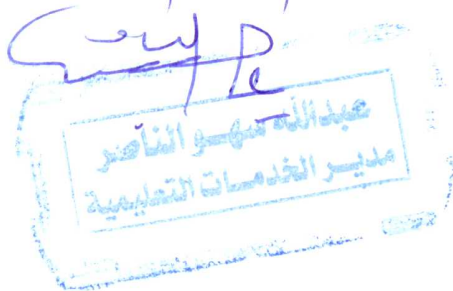 عبدالله سهو الناصر
مديـر الخدمـات التعليمية